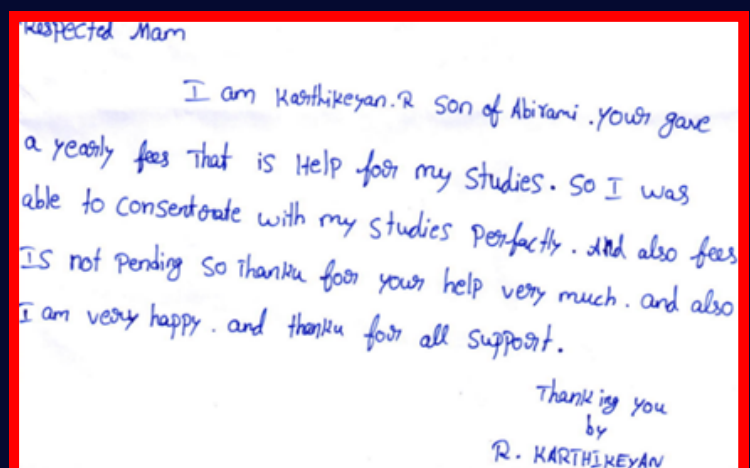 Respected Mam
I am Karthikeyan.R Son of Abirami . your gave
a yearly fees That is Help for my Studies. So I was
able to Consentrate with my Studies Perfactly. And also fees
IS not Pending So Thanku for your help very much. and also
I am very happy. and thanku for all Support.
Thanking you
by
R. KARTHIKEYAN